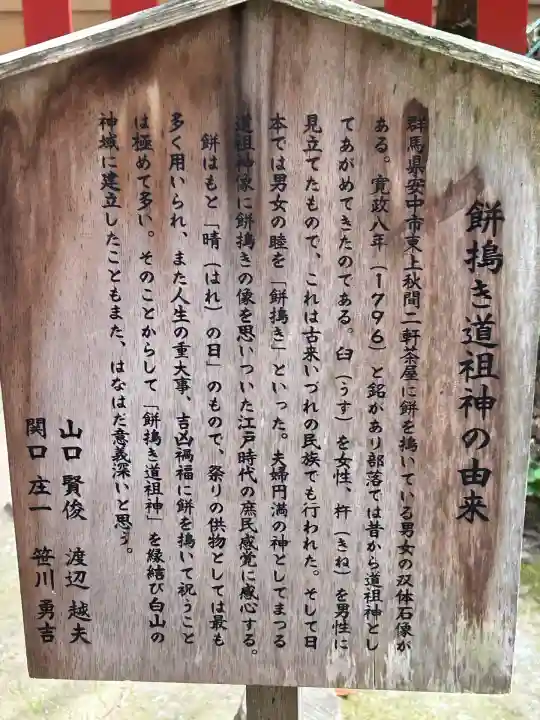 餅搗き道祖神の由来
群馬県安中市東上秋間二軒茶屋に餅を搗いている男女の双体石像が
ある。寛政八年（1796）と銘があり部落では昔から道祖神とし
てあがめてきたのである。臼（うす）を女性、杵（きね）を男性に
見立てたもので、これは古来いづれの民族でも行われた。そして日
本では男女の睦を「餅搗き」といった。夫婦円満の神としてまつる
道祖神像に餅搗きの像を思いついた江戸時代の庶民感覚に感心する。
餅はもと「晴（はれ）の日」のもので、祭りの供物としては最も
多く用いられ、また人生の重大事、吉凶禍福に餅を搗いて祝うこと
は極めて多い。そのことからして「餅搗き道祖神」を縁結び白山の
神域に建立したこともまた、はなはだ意義深いと思う。
山口 賢俊 渡辺 越夫
関口 庄一 笹川 勇吉